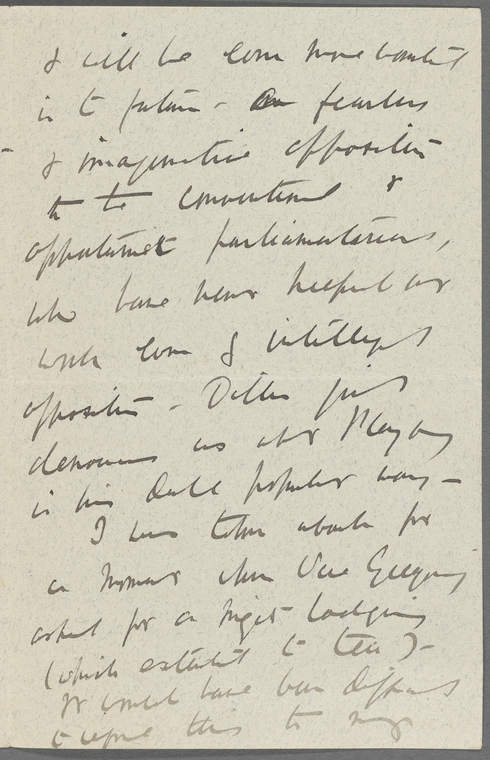 & will be even more wanted
in the future - a fearless
& imaginative opposition
to the conventional &
opportunist parliamentarians,
who have never helped our
work even by intelligent
opposition - Dillon just
denounces us over Playboy
in his dull popular way -
I was taken aback for
a moment when Vere Gregory
asked for a night's lodging
(which extended to ten) -
It would have been difficult
to refuse this to my